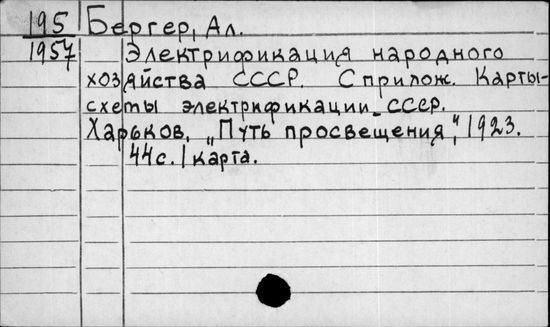 195 Бергер, Ал.
1957 Электрификация народного
хозяйства СССР. С прилож. Карты-
схемы электрификации СССР.
Харьков, „Путь просвещения“, 1923.
44с. 1 карта.